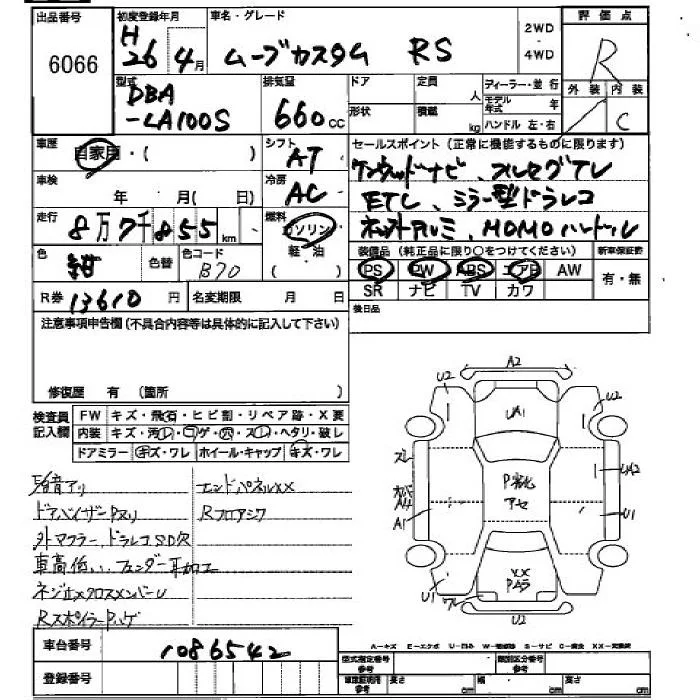 出品番号
6066
初度登録年月
H 26年 4月
車名・グレード
ムーブカスタム RS
2WD
4WD
評価点
R
外装 内装
C
型式
DBA
-LA100S
排気量
660cc
ドア
定員
人
形状
積載
kg
ディーラー・並行
モデル年式 年
ハンドル 左・右
車歴
自家用・( )
シフト
AT
冷房
AC
セールスポイント(正常に機能するものに限ります)
ケンウッドナビ、フルセグTV
ETC、ミラー型ドラレコ
ネットアルミ、MOMOハンドル
車検
年 月(日)
走行
8万7千855km
燃料
ガソリン
軽・油
色
紺
色替
色コード
B70
装備品(純正品に限り○をつけてください)
新車保証書
PS PW ABS エアB AW
SR ナビ TV カワ
有・無
R券 13610円
名変期限 月 日
後日品
注意事項申告欄(不具合内容等は具体的に記入して下さい)
修復歴 有 (箇所 )
検査員
記入欄
FW キズ・飛石・ヒビ割・リペア跡・X要
内装 キズ・汚レ・コゲ・穴・スレ・ヘタリ・破レ
ドアミラー キズ・ワレ ホイール・キャップ キズ・ワレ
エンドパネルXX
ドアバイザーPヌリ
Rフロアシワ
外マフラー、ドラレコSD欠
車高低、、フェンダー耳加工
RスポイラーPハゲ
A2
U2
U2
UA1
スレ
A4
A1
P劣化
アセ
UA2
U1
U1
ワレ
XX
PA5
U2
車台番号
1086542
登録番号
A−キズ E−エクボ U−凹み W−補修跡 S−サビ C−腐食 XX−交換済
型式指定番号
参考
類別区分番号
参考
車庫証明用
参考
長さ cm
幅 cm
高さ cm